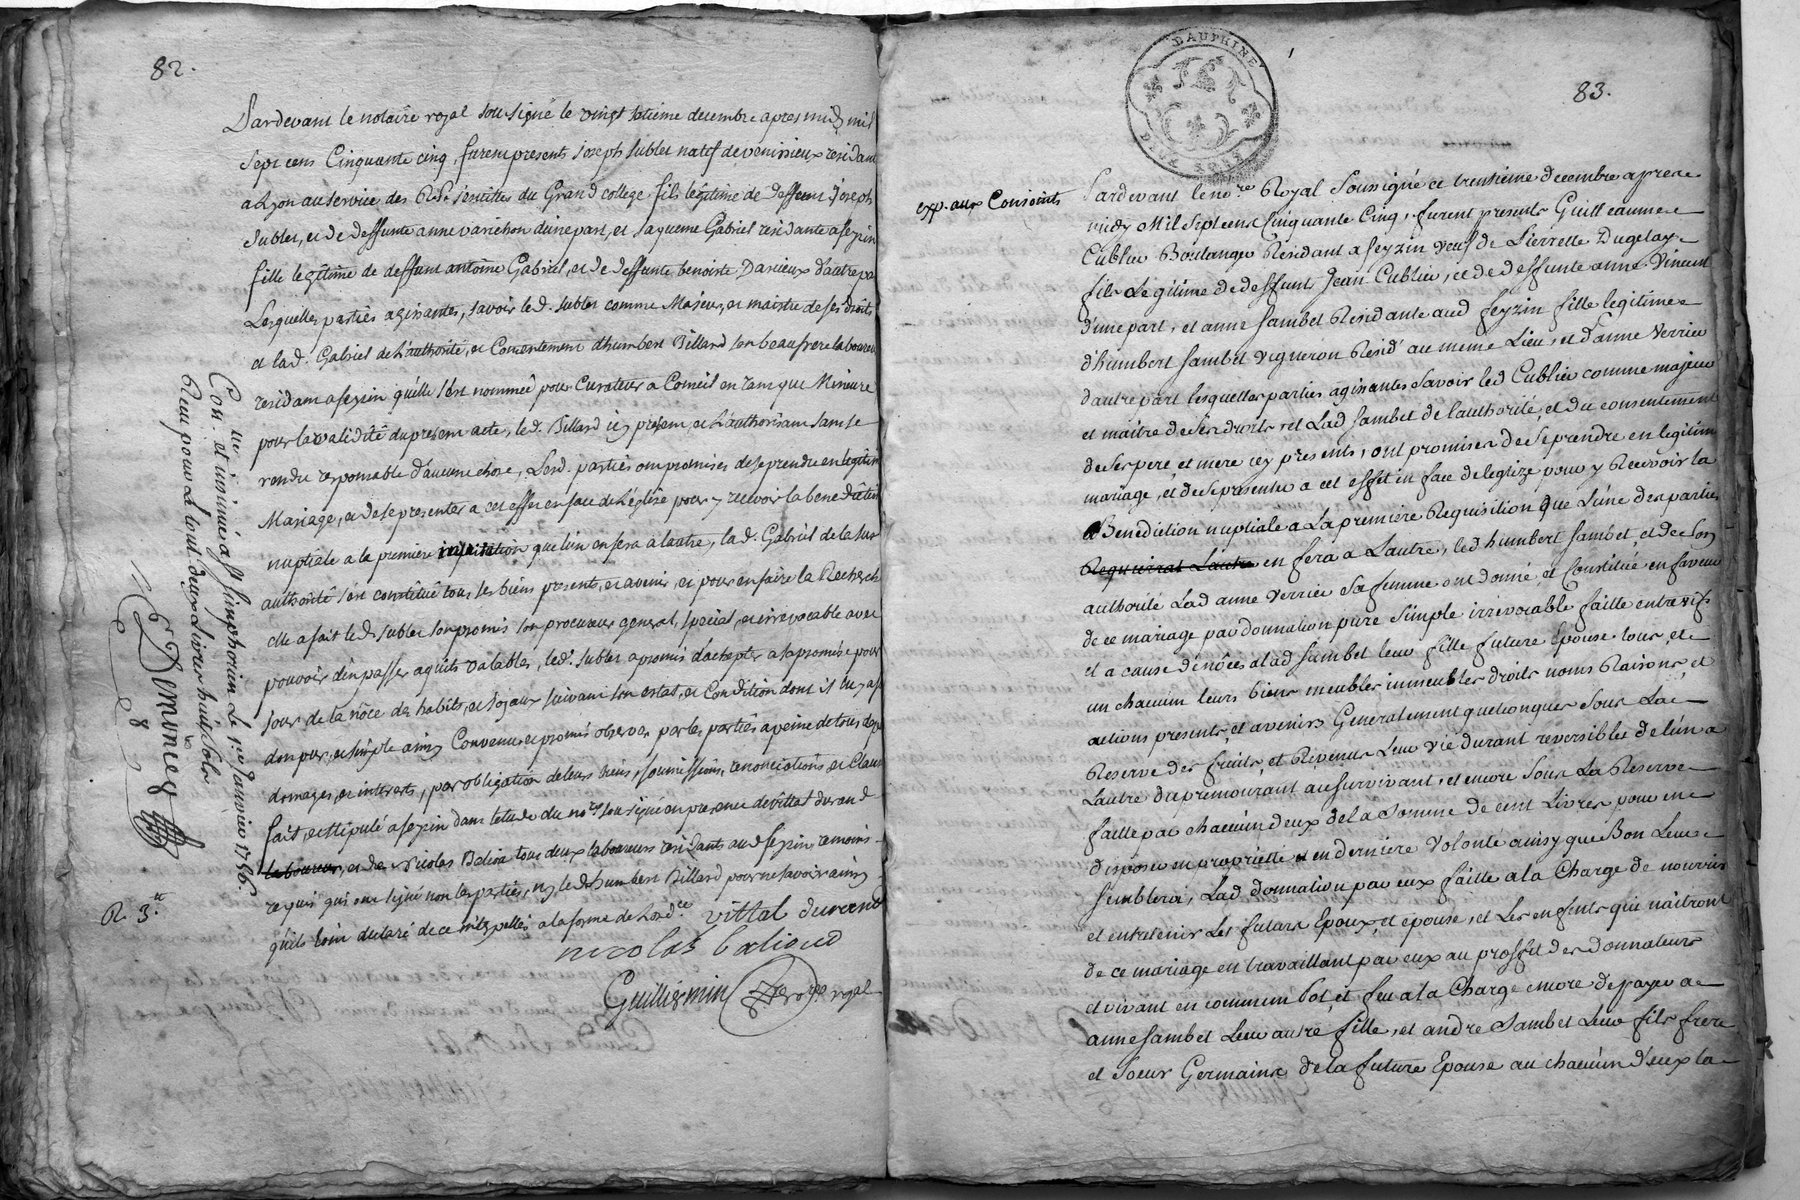 82.
Pardevant le notaire royal soussigné le vingt setieme decembre apres midy mil
sept cens Cinquante cinq, furent presents joseph sublet natif de venissieux residant
a Lyon au service des Rds. jesuittes du Grand college fils legitime de deffunt joseph
sublet, et de deffunte anne varichon d'une part, et jaqueme Gabriel residante a feyzin
fille legitime de deffunt antoine Gabriel, et de deffunte benoiste Darieux d'autre pa
Lesquelles parties agissantes, savoir led. sublet comme Majeur, et maistre de ses droits
et lad. Gabriel de l'authorité, et Consentement d'humbert Billard son beaufrere laboureu
residant a feyzin qu'elle s'est nommée pour Curateur a Conseil en tant que Mineure
pour la validité du present acte, led. Billard icy present, et l'authorisant sans se
rendre responsable d'aucune chose, Lesd. parties ont promises de se prendre en legitim
Mariage, et de se presenter a cet effet en face de L'églize pour y recevoir la benediction
nuptiale a la premiere que l'un en fera a l'autre, lad. Gabriel de la sus
authorité s'est constitué tous ses biens presents, et avenir, et pour en faire la Recherch
elle a fait led. sublet son promis son procureur general, special, et irrevocable avec
pouvoir d'en passer aquits valables, led. sublet a promis d'achepter a sa promise pour
jour de la nôce des habits, et joyaux suivant son estat, et Condition dont il luy a fa
don pur, et simple ainsy Convenu et promis observer par les parties a peine de tous depe
domages, et interests, par obligation de leurs biens, soumissions, renonciations, et Claus
fait, et stipulé a feyzin dans l'etude du nore. soussigné en presence de vittal durand
laboureur, et de Nicolas Balioud tous deux laboureurs residants aud. feyzin temoins
requis qui ont signé non les parties, ny led. humbert Billard pour ne savoir ainsy
qu'ils l'ont declaré de ce interpellés a la forme de l'ordce. vittal durand
nicolas balioud
Guillermin nore royal
Con. lle. et insinué a St simphorien Le 1er. Janvier 1756.
Reçu pour Le tout deux Livres huit sols
Demuner
R. 3.tt
DAUPHINE
DEUX SOLS
83.
exp. aux Conjoints
Pardevant le nore. Royal Soussigné ce trentieme decembre apres
midy Mil Sept cens Cinquante Cinq, furent presents Guilleaume
Cublier Boulanger Residant a feyzin veuf de Pierrette Dugelay
fils Legitime de deffunt Jean Cublier, et de deffunte anne Vincent
d'une part, et anne Sambet Residante aud feyzin fille legitime
d'humbert Sambet vigneron Resid' au meme Lieu, et d'anne Verrier
d'autre part lesquelles parties agissantes savoir led Cublier comme majeur
et maitre de ses droits, et Lad Sambet de l'authorité, et du consentement
de ses pere, et mere icy presents, ont promises de se prendre en legitime
mariage, et de se presenter a cet effet en face de leglize pour y Recevoir la
Benediction nuptiale a La premiere Requisition Que L'une des parties
Requierrat Lautre en fera a Lautre, led humbert Sambet, et de son
authorité Lad anne Verrier sa femme ont donné, et Constitué en faveur
de ce mariage par donnation pure simple irrevocable faitte entrevifs
et a cause de nôces a lad Sambet leur fille future Epouse tous, et
un chacun leurs biens meubles immeubles droits noms Raisons, et
actions presents, et avenirs Generalement quelconques sous La
Reserve des fruits, et Revenus Leur vie durant reversibles de l'un a
Lautre du premourant au survivant, et encore sous La Reserve
faitte par chacun d'eux de la somme de cent Livres pour en
disposer en proprietté et en derniere volonté ainsy que Bon Leur
semblera, Lad donnation par eux faitte a la Charge de nourrir
et entretenir Les futurs Epoux, et epouse, et Les enfents qui naitront
de ce mariage en travaillant par eux au proffit des donnateurs
et vivant en commun pot, et feu a la Charge encore de payer a
anne Sambet Leur autre fille, et andré Sambet Leur fils frere
et soeur Germains de la future Epouse au chacun d'eux la